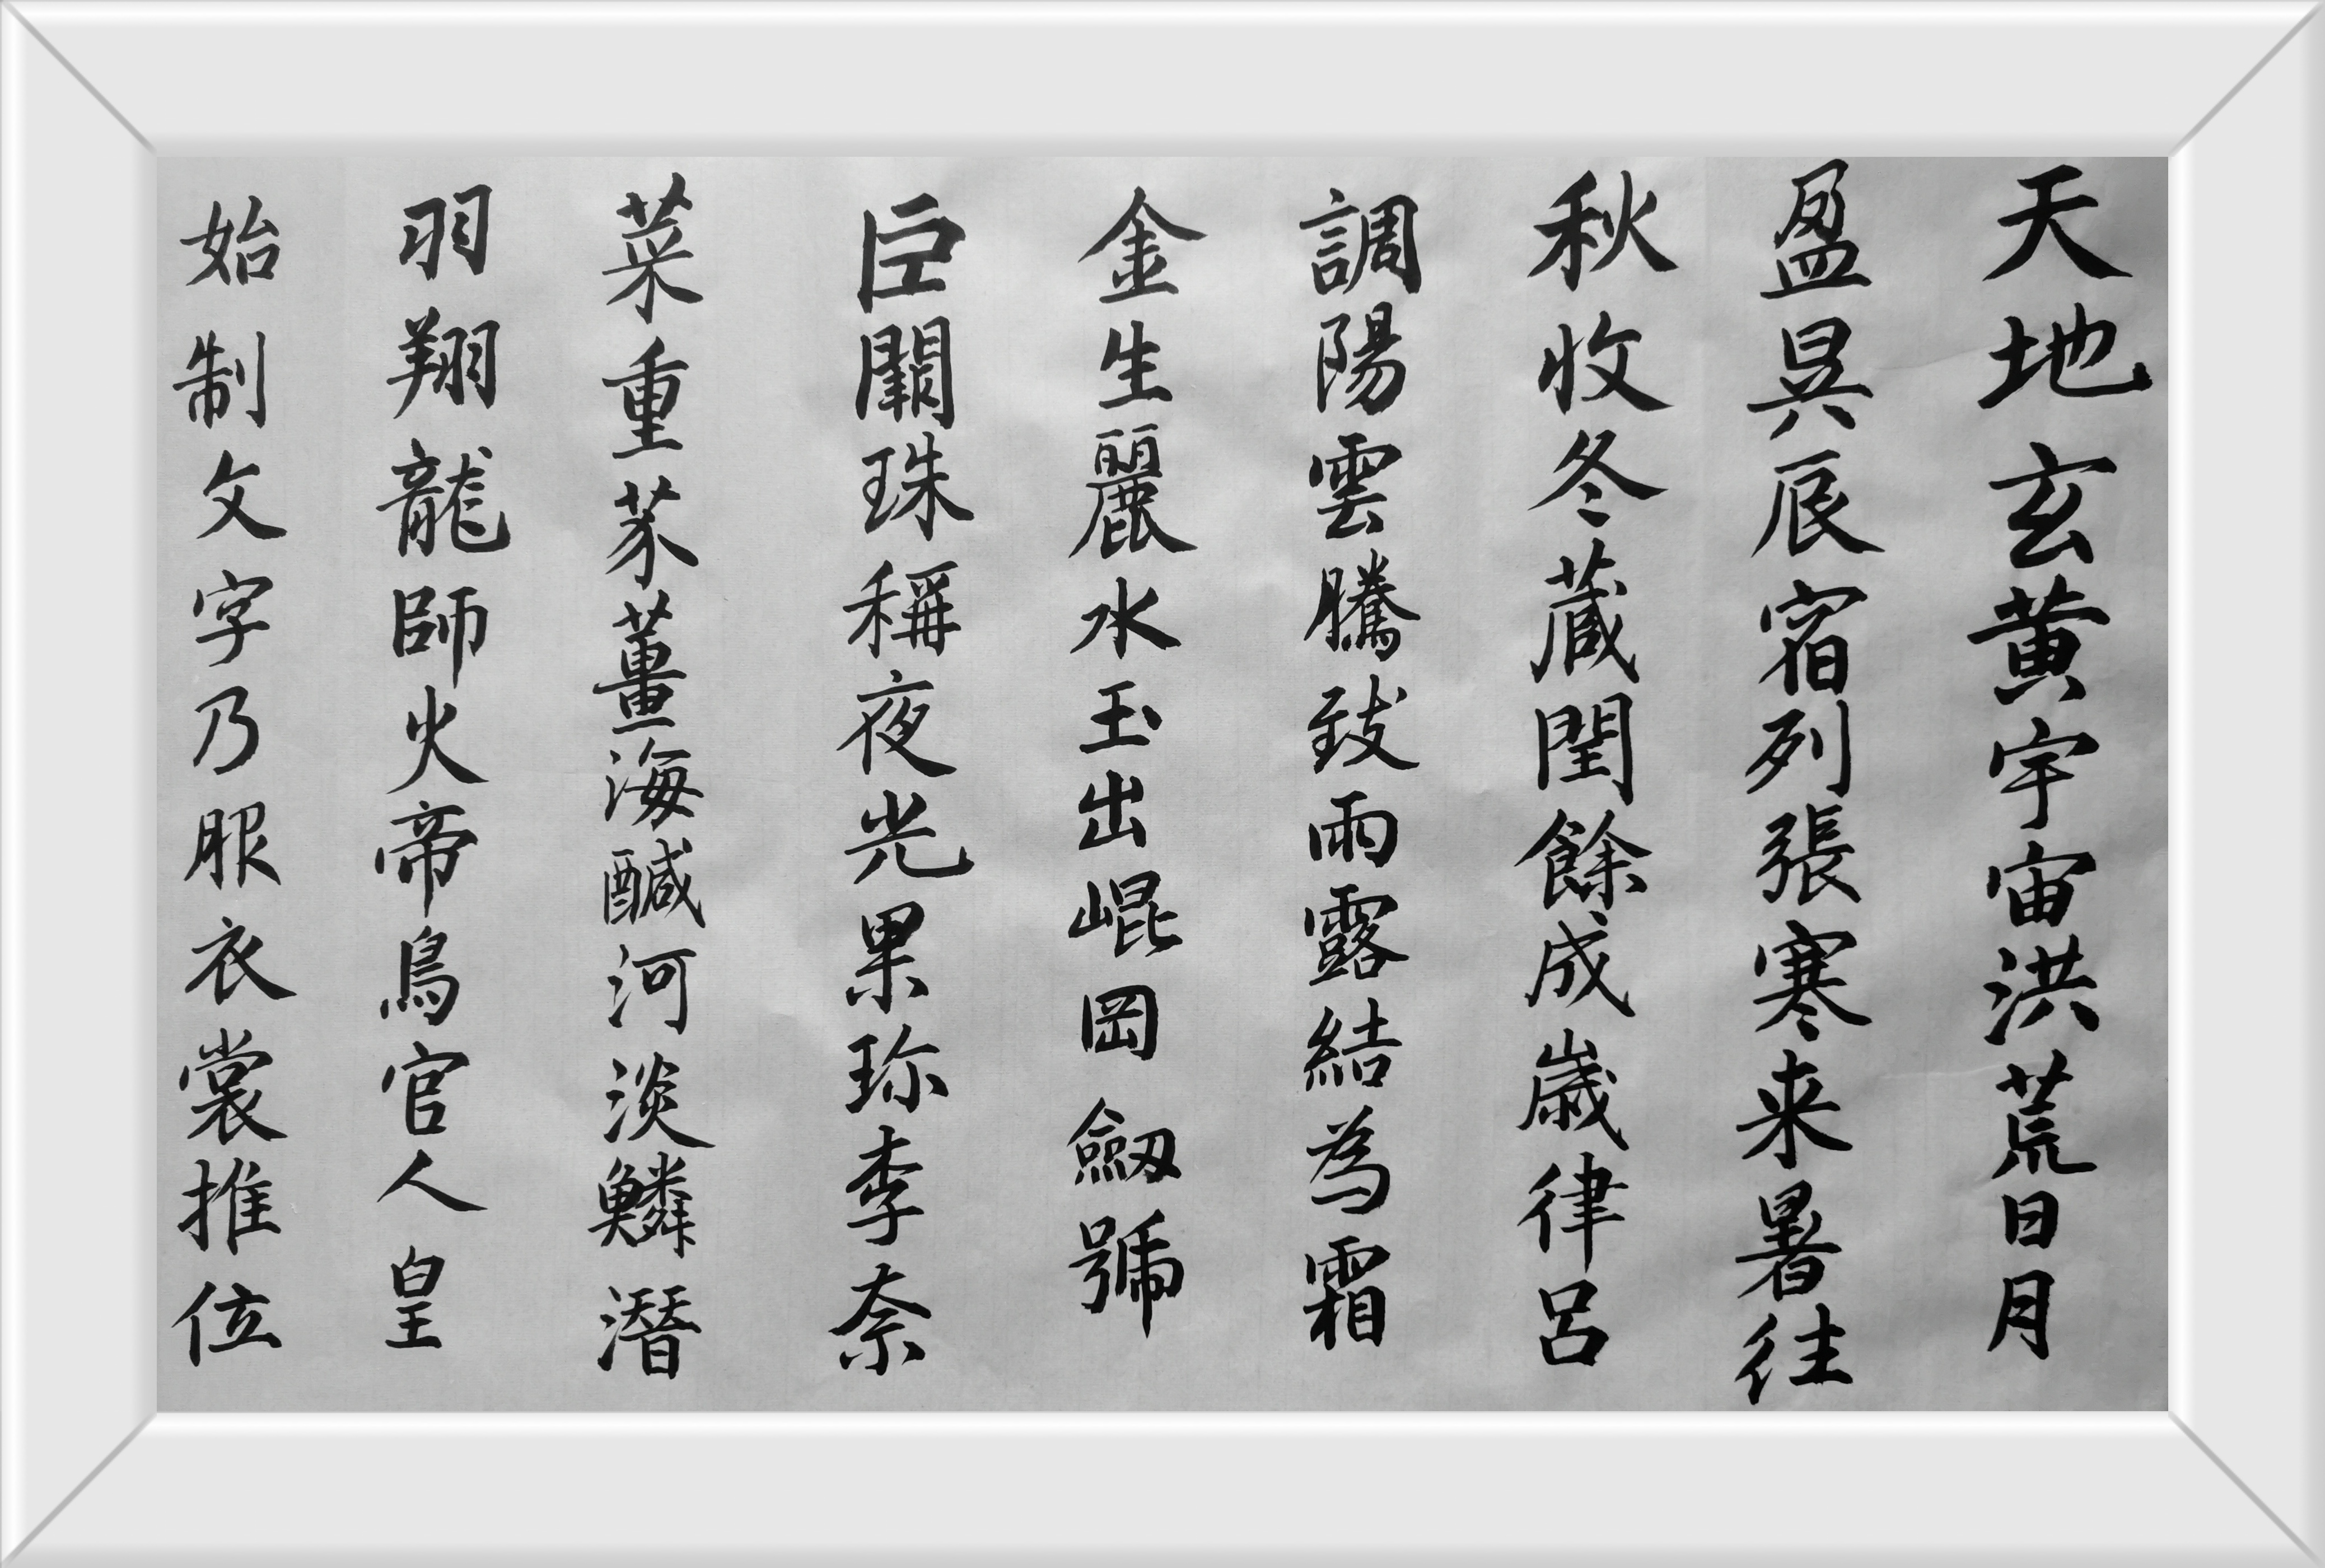 天地玄黄宇宙洪荒日月
盈昃辰宿列張寒来暑往
秋收冬蔵閏餘成歳律呂
調陽雲騰致雨露結為霜
金生麗水玉出崐岡劔號
巨闕珠稱夜光果珎李柰
菜重芥薑海醎河淡鱗潛
羽翔龍師火帝鳥官人皇
始制文字乃服衣裳推位